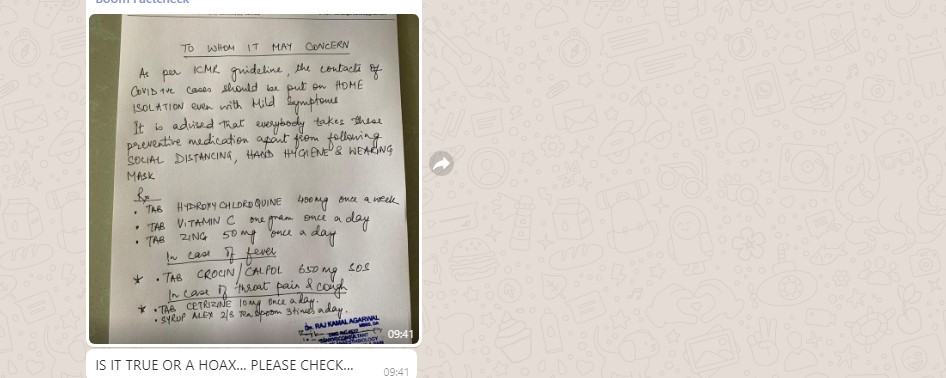 Boom Factcheck
TO WHOM IT MAY CONCERN
As per ICMR guideline, the contacts of
COVID +ve cases should be put on HOME
ISOLATION even with Mild Symptoms
It is advised that everybody takes these
preventive medication apart from following
SOCIAL DISTANCING, HAND HYGIENE & WEARING
MASK
Rx
• TAB HYDROXYCHLOROQUINE 400mg once a week
• TAB VITAMIN C one gram once a day
• TAB ZING 50 mg once a day
In case of fever
* • TAB CROCIN/CALPOL 650 mg SOS
In case of throat pain & cough
* • TAB CETRIZINE 10mg once a day.
• SYRUP ALEX 2/3 Tea spoon 3 times a day.
Dr. RAJ KAMAL AGARWAL
09:41
IS IT TRUE OR A HOAX... PLEASE CHECK...
09:41